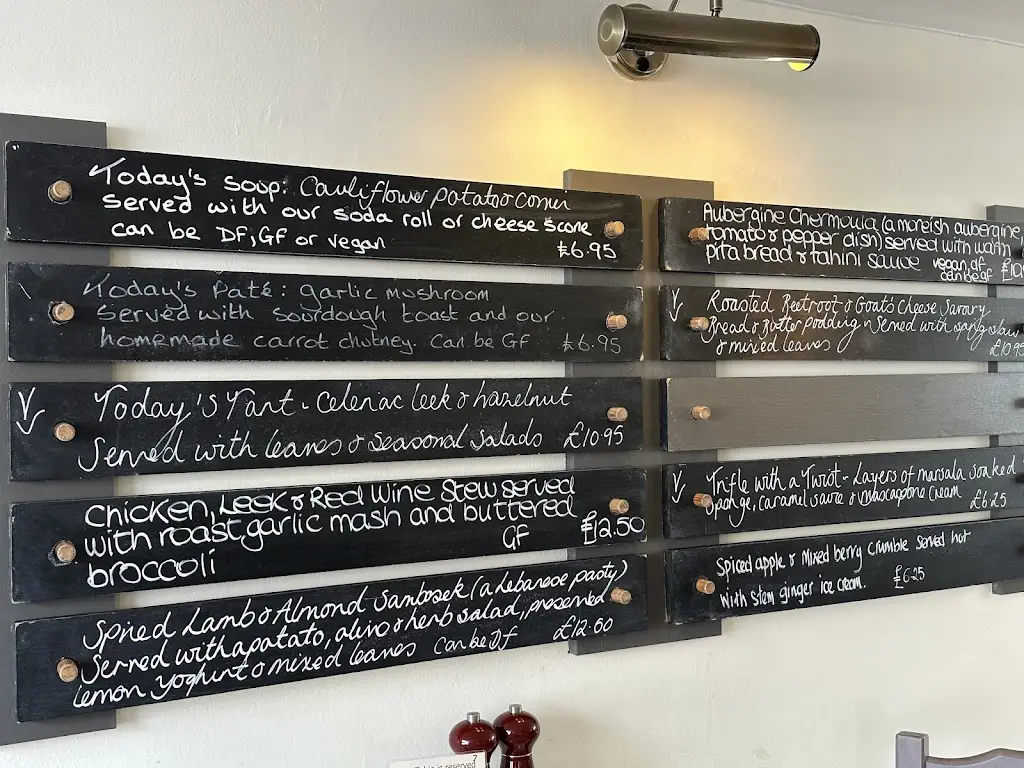 Today's Soup: Cauliflower potato & cumin
served with our soda roll or cheese scone
can be DF, GF or vegan £6.95
Today's Paté: garlic mushroom
Served with sourdough toast and our
homemade carrot chutney. Can be GF £6.95
V Today's Tart - Celeriac leek & hazelnut
Served with leaves & seasonal salads £10.95
Chicken, Leek & Red Wine Stew served
with roast garlic mash and buttered
broccoli GF £12.50
Spiced Lamb & Almond Sambosek (a Lebanese pasty)
served with a potato, olive & herb salad, preserved
lemon yoghurt & mixed leaves Can be DF £12.60
Aubergine Chermoula (a moreish aubergine,
tomato & pepper dish) served with warm
pita bread & tahini sauce vegan, df can be gf
V Roasted Beetroot & Goats Cheese Savoury
Bread & Butter pudding - Served with spring slaw
& mixed leaves £10.95
V Trifle with a Twist - Layers of marsala soaked
sponge, caramel sauce & mascarpone cream £6.25
Spiced apple & Mixed berry Crumble served hot
with stem ginger ice cream. £6.25
is reserved